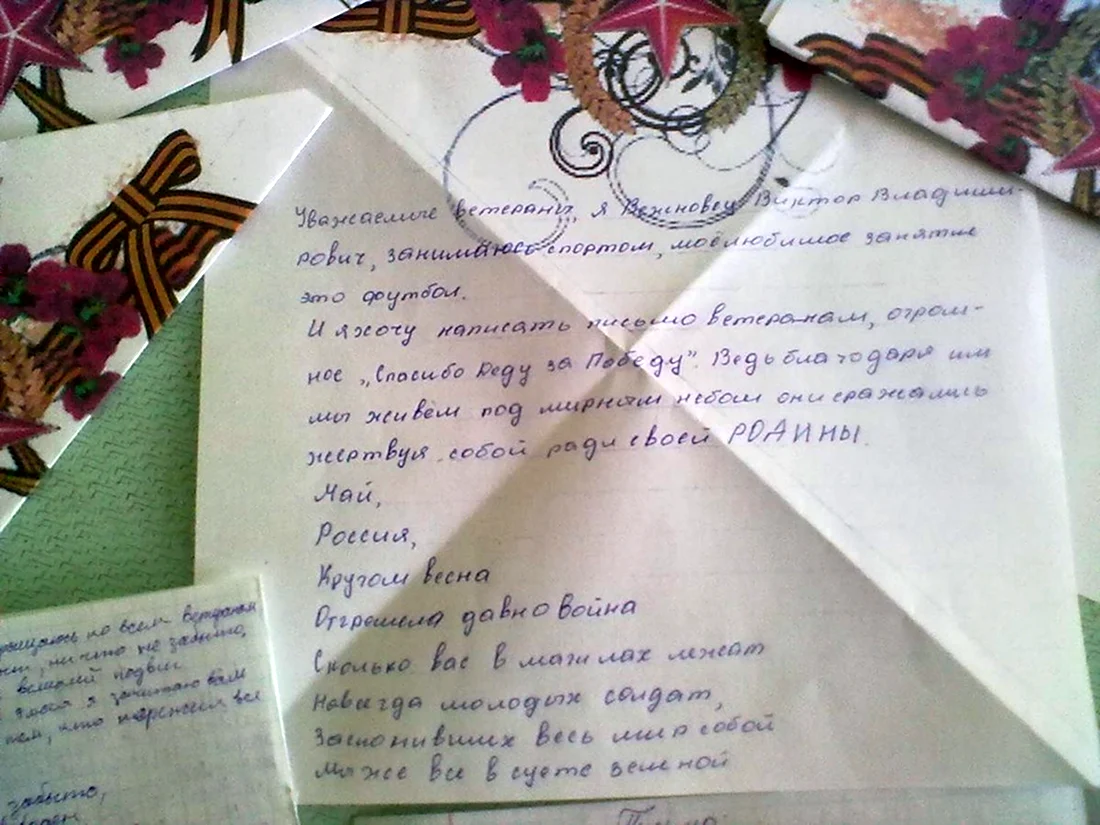 Уважаемые ветераны, я Вежновец Виктор Владими-
рович, занимаюсь спортом, моё любимое занятие
это футбол.
И я хочу написать письмо ветеранам, огром-
ное „Спасибо Деду за Победу”. Ведь благодаря им
мы живём под мирным небом они сражались
жертвуя собой ради своей РОДИНЫ.
Май,
Россия,
Кругом весна
Отгремела давно война
Сколько вас в магилах лежат
Навсегда молодых солдат,
Заслонивших весь мир собой
Мы же все в суете земной
ко всем ветераном
ни что не забыто,
подвиг
я зачитаю вам
что пережили все
забыто,
Письмо